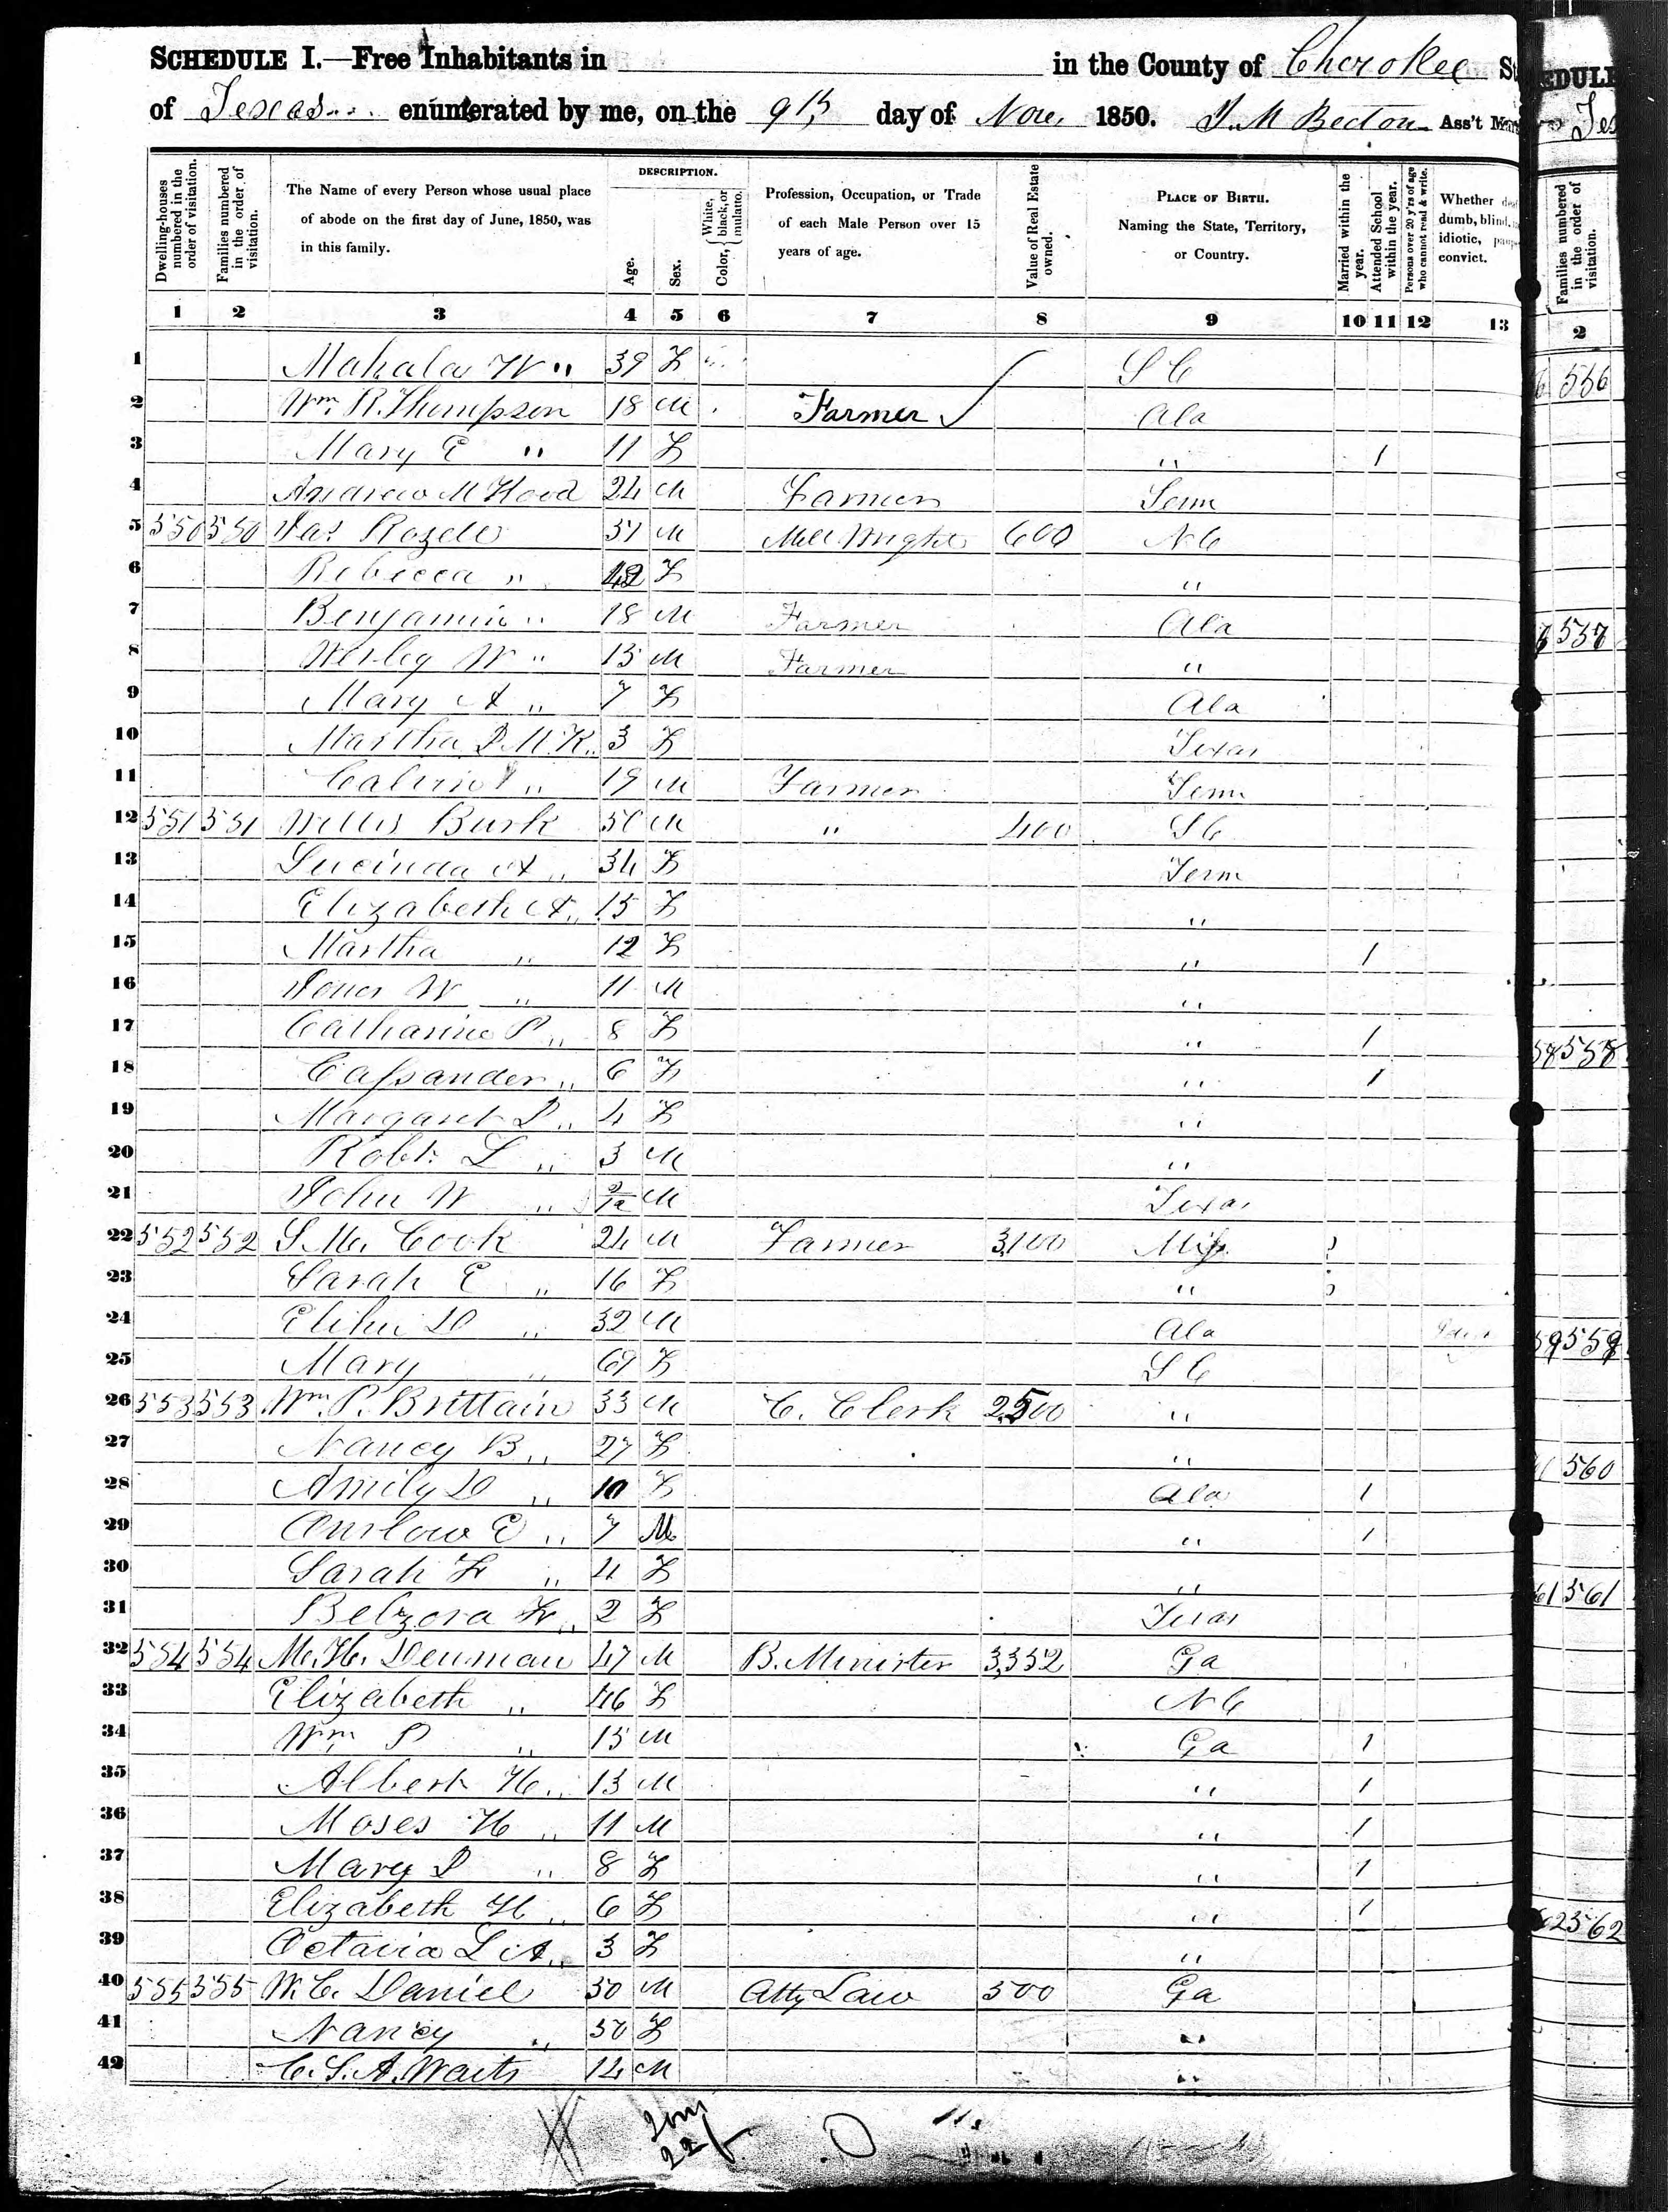 SCHEDULE I.—Free Inhabitants in in the County of Cherokee
of Texas enumerated by me, on the 9th day of Nov 1850. J. M Becton Ass't
Dwelling-houses numbered in the order of visitation.
Families numbered in the order of visitation.
The Name of every Person whose usual place of abode on the first day of June, 1850, was in this family.
DESCRIPTION.
Age.
Sex.
Color, { White, black, or mulatto.
Profession, Occupation, or Trade of each Male Person over 15 years of age.
Value of Real Estate owned.
PLACE OF BIRTH. Naming the State, Territory, or Country.
Married within the year.
Attended School within the year.
Persons over 20 y'rs of age who cannot read & write.
Whether deaf dumb, blind, idiotic, convict.
Families numbered in the order of visitation.
1 2 3 4 5 6 7 8 9 10 11 12 13 2
1 Mahala W " 39 F S C 556
2 Wm. R. Thompson 18 M Farmer Ala
3 Mary E " 11 F " 1
4 Andrew M Hood 24 M Farmer Tenn
5 550 550 Jas Rozell M Mill Wright 600 N C
6 Rebecca " 42 F "
7 Benjamin " 18 M Farmer Ala 557
8 Wesley W " 15 M Farmer "
9 Mary A " 7 F Ala
10 Martha M. K. " 3 F Texas
11 Calvin " 19 M Farmer Tenn
12 551 551 Willis Burk 50 M " 400 S C
13 Lucinda A " 34 F Tenn
14 Elizabeth A. " 15 F "
15 Martha " 12 F " 1
16 Jones W " 11 M "
17 Catharine P " 8 F " 1 558
18 Cassander " 6 F " 1
19 Margaret " 4 F "
20 Robt. L " 3 M "
21 John W " /12 M Texas
22 552 552 S. M. Cook 24 M Farmer 3,100 Miss
23 Sarah E " 16 F "
24 Elihu D " 32 M Ala 559
25 Mary " F S C
26 553 553 Wm. P. Brittain 33 M C. Clerk 2,500 "
27 Nancy B " 27 F " 560
28 Amily D " 10 F Ala 1
29 Onslow E " 7 M " 1
30 Sarah F " 4 F " 561
31 Belzora F " 2 F Texas
32 554 554 M. H. Denman 47 M B. Minister 3,352 Ga
33 Elizabeth " 46 F N C
34 Wm P " 15 M Ga 1
35 Albert H. " 13 M " 1
36 Moses H " 11 M " 1
37 Mary " 8 F " 1
38 Elizabeth H " 6 F " 1 562
39 Octavia L A " 3 F "
40 555 555 W. C. Daniel 50 M Atty Law 500 Ga
41 Nancy " 50 F "
42 C. S. A. Waits 14 M "
20m
22f